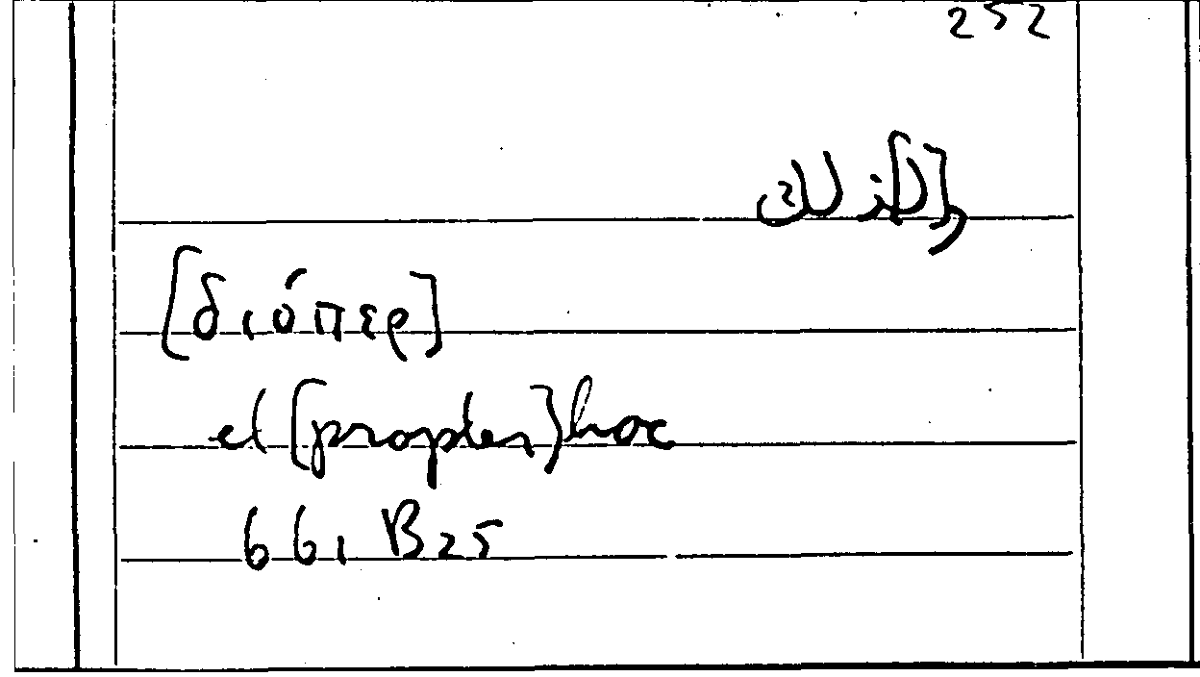 252
و[ل]ذلك
[διόπερ]
et [propter] hoc
661 B25